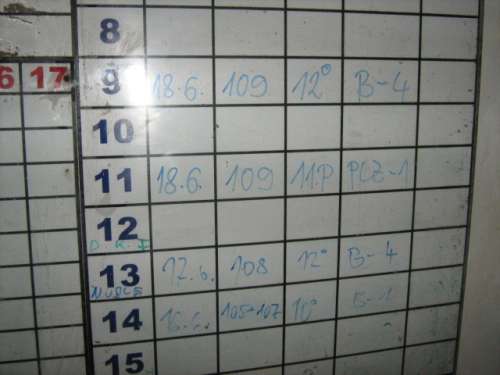 8
6 17 9 18.6. 109 12° B-4
10
11 18.6. 109 11P PLZ-1
12
13 17.6. 108 12° B-4
NUSLE
14 16.6. 105-107 10°
15